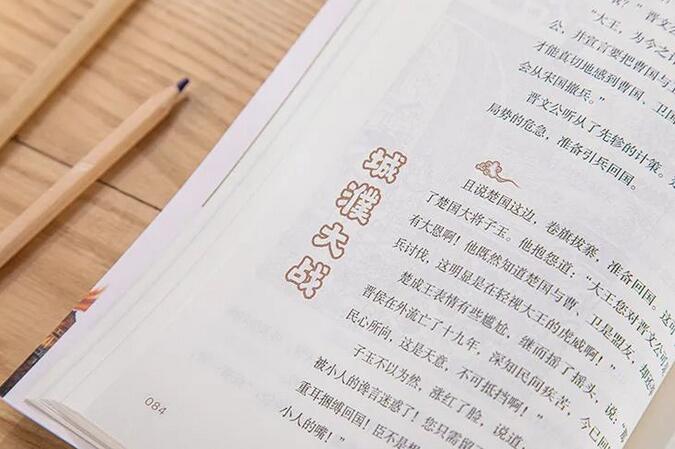 “大王，为今之
公，并宣言要把曹国与
才能真切地感到曹国、卫国
会从宋国撤兵。”
晋文公听从了先轸的计策。
局势的危急，准备引兵回国。
城濮大战
且说楚国这边，卷旗拔寨，准备回国。这
了楚国大将子玉。他抱怨道：“大王您对晋文公可
有大恩啊！他既然知道楚国与曹、卫是盟友，却
兵讨伐，这明显是在轻视大王的虎威啊！”
楚成王表情有些尴尬，继而摇了摇头，说：
晋侯在外流亡了十九年，深知民间疾苦，今已
民心所向，这是天意，不可抵挡啊！”
子玉不以为然，涨红了脸，说道
被小人的谗言迷惑了！您只需留
重耳捆缚回国！臣不是
小人的嘴！”
084